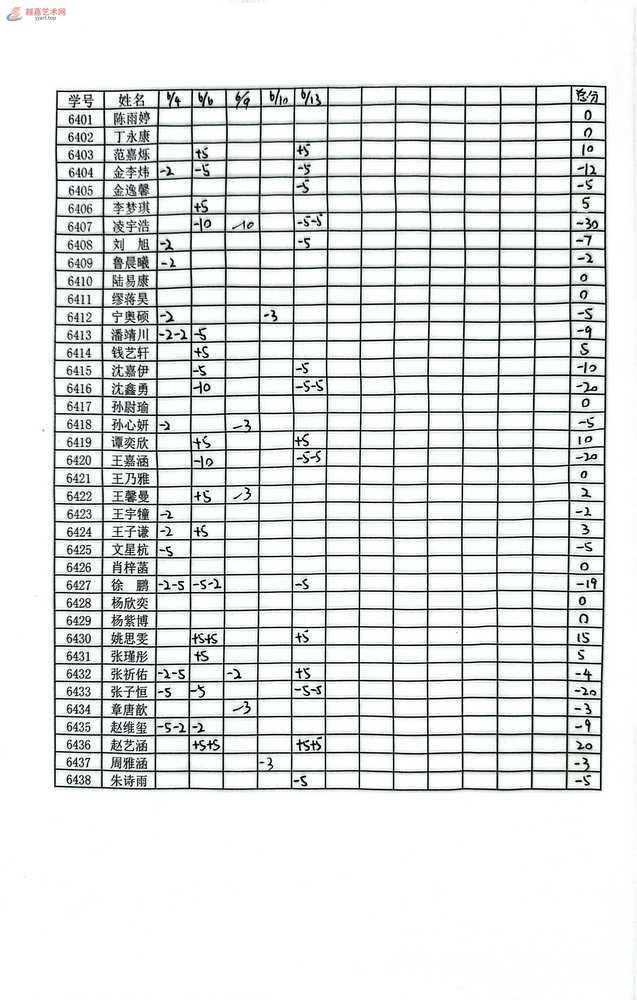 越嘉艺术网
yjart.top
学号 姓名 6/4 6/6 6/9 6/10 6/13 总分
6401 陈雨婷 0
6402 丁永康 0
6403 范嘉烁 +5 +5 10
6404 金李炜 -2 -5 -5 -12
6405 金逸馨 -5 -5
6406 李梦琪 +5 5
6407 凌宇浩 -10 -10 -5-5 -30
6408 刘旭 -2 -5 -7
6409 鲁晨曦 -2 -2
6410 陆易康 0
6411 缪蒋昊 0
6412 宁奥硕 -2 -3 -5
6413 潘靖川 -2-2 -5 -9
6414 钱艺轩 +5 5
6415 沈嘉伊 -5 -5 -10
6416 沈鑫勇 -10 -5-5 -20
6417 孙尉瑜 0
6418 孙心妍 -2 -3 -5
6419 谭奕欣 +5 +5 10
6420 王嘉涵 -10 -5-5 -20
6421 王乃雅 0
6422 王馨曼 +5 -3 2
6423 王宇犝 -2 -2
6424 王子谦 -2 +5 3
6425 文星杭 -5 -5
6426 肖梓菡 0
6427 徐鹏 -2-5 -5-2 -5 -19
6428 杨欣奕 0
6429 杨紫博 0
6430 姚思雯 +5+5 +5 15
6431 张瑾彤 +5 5
6432 张祈佑 -2-5 -2 +5 -4
6433 张子恒 -5 -5 -5-5 -20
6434 章唐歆 -3 -3
6435 赵维玺 -5-2 -2 -9
6436 赵艺涵 +5+5 +5+5 20
6437 周雅涵 -3 -3
6438 朱诗雨 -5 -5